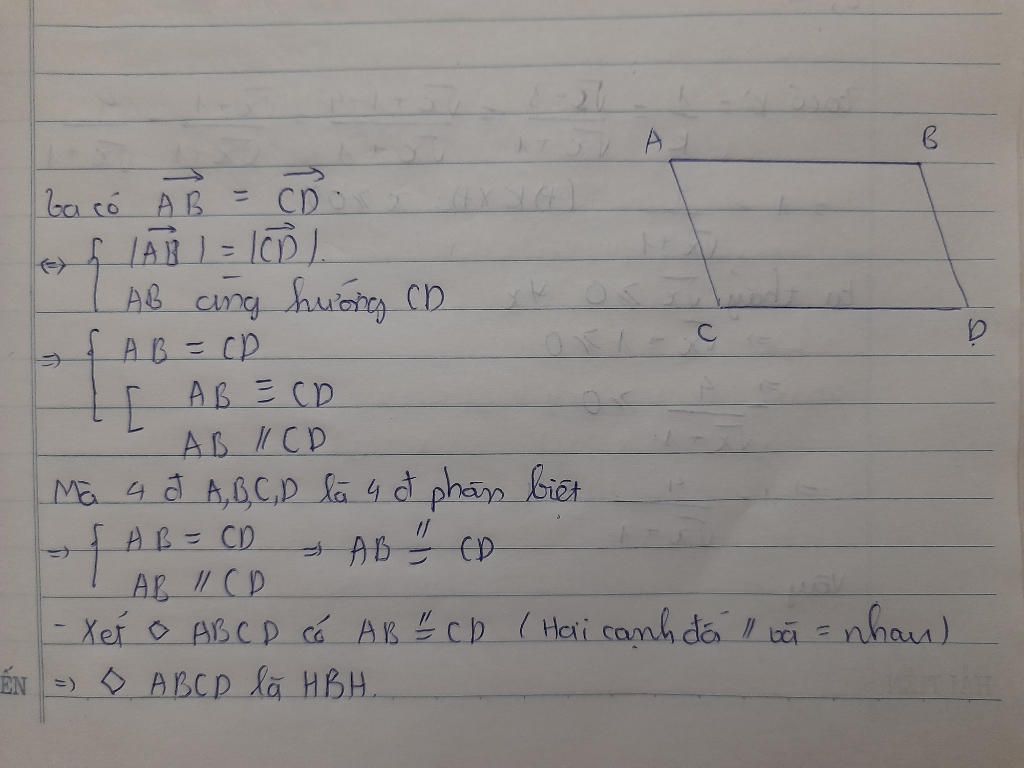 A B
Ta có AB = CD
⇔ { |AB| = |CD|.
AB cùng hướng CD
C D
⇒ { AB = CD
[ AB ≡ CD
AB // CD
Mà 4 đ A,B,C,D là 4 đ phân biệt
⇒ { AB = CD ⇒ AB //= CD
AB // CD
- Xét ◇ ABCD có AB //= CD (Hai cạnh đối // và = nhau)
ẾN ⇒ ◇ ABCD là HBH.